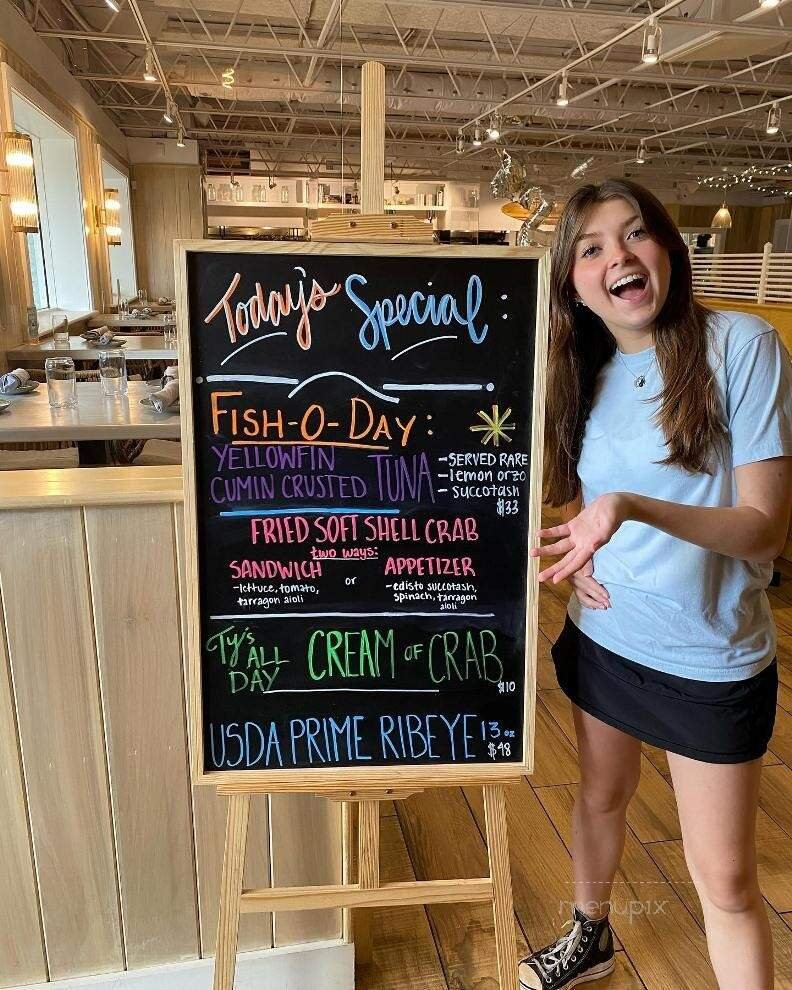 Today's Special:
FISH-O-DAY:
YELLOWFIN
CUMIN CRUSTED TUNA
-SERVED RARE
-lemon orzo
- succotash
$33
FRIED SOFT SHELL CRAB
two ways:
SANDWICH
-lettuce, tomato,
tarragon aioli
or
APPETIZER
-edisto succotash,
spinach, tarragon
aioli
Ty's
ALL
DAY
CREAM OF CRAB
$10
USDA PRIME RIBEYE 13 oz
$48
menupix